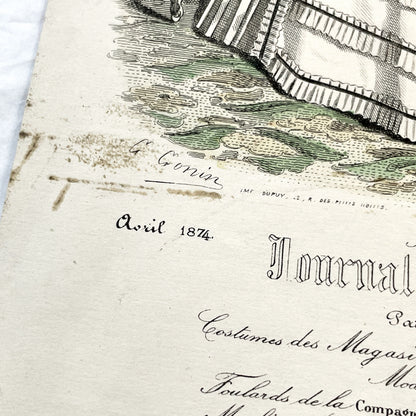 G. Gonin
IMP. DUPUY, 22, R. DES PETITS HOTELS.
Avril 1874.
Journal
Costumes des Magasi
Mod
Foulards de la Compagn